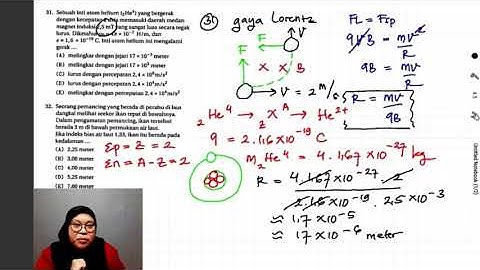 31. Sebuah inti atom helium (₂He⁴) yang bergerak
dengan kecepatan 2 m/s memasuki daerah medan
magnet induksi 2,5 mT yang serba luas secara tegak
lurus. Diketahui
e = 1,6 × 10⁻¹⁹ C, inti atom helium ini mengalami
gerak ....
(A) melingkar dengan jejari 17 × 10⁻³ meter
(B) melingkar dengan jejari 17 × 10⁻⁶ meter
(C) lurus dengan percepatan 2,4 × 10⁴ m/s²
(D) lurus dengan percepatan 2,4 × 10⁶ m/s²
(E) melingkar dengan percepatan 2,4 × 10⁴ m/s²
32. Seorang pemancing yang berada di perahu di laut
dangkal melihat seekor ikan tepat di bawahnya.
Dalam pengamatan pemancing, ikan tersebut
berada 3 m di bawah permukaan air laut.
Jika indeks bias air laut 1,33, ikan itu berada pada
kedalaman ....
(A) 2,25 meter
(B) 3,00 meter
(C) 4,00 meter
(D) 5,25 meter
Σp = Z = 2
Σn = A - Z = 2
31 gaya Lorentz
V
F
F
X X B
V = 2 m/s
₂He⁴ → zXᴬ → He²⁺
q = 2. 1,6 × 10⁻¹⁹ C
m ₂He⁴ = 4. 1,67 × 10⁻²⁷ kg
R = 4. 1,67 × 10⁻²⁷. 2
2. 1,6 × 10⁻¹⁹. 2,5 × 10⁻³
≈ 1,7 × 10⁻⁵
≈ 17 × 10⁻⁶ meter
FL = Fsp
qVB = mV²
R
qB = mV
R
R = mV
qB